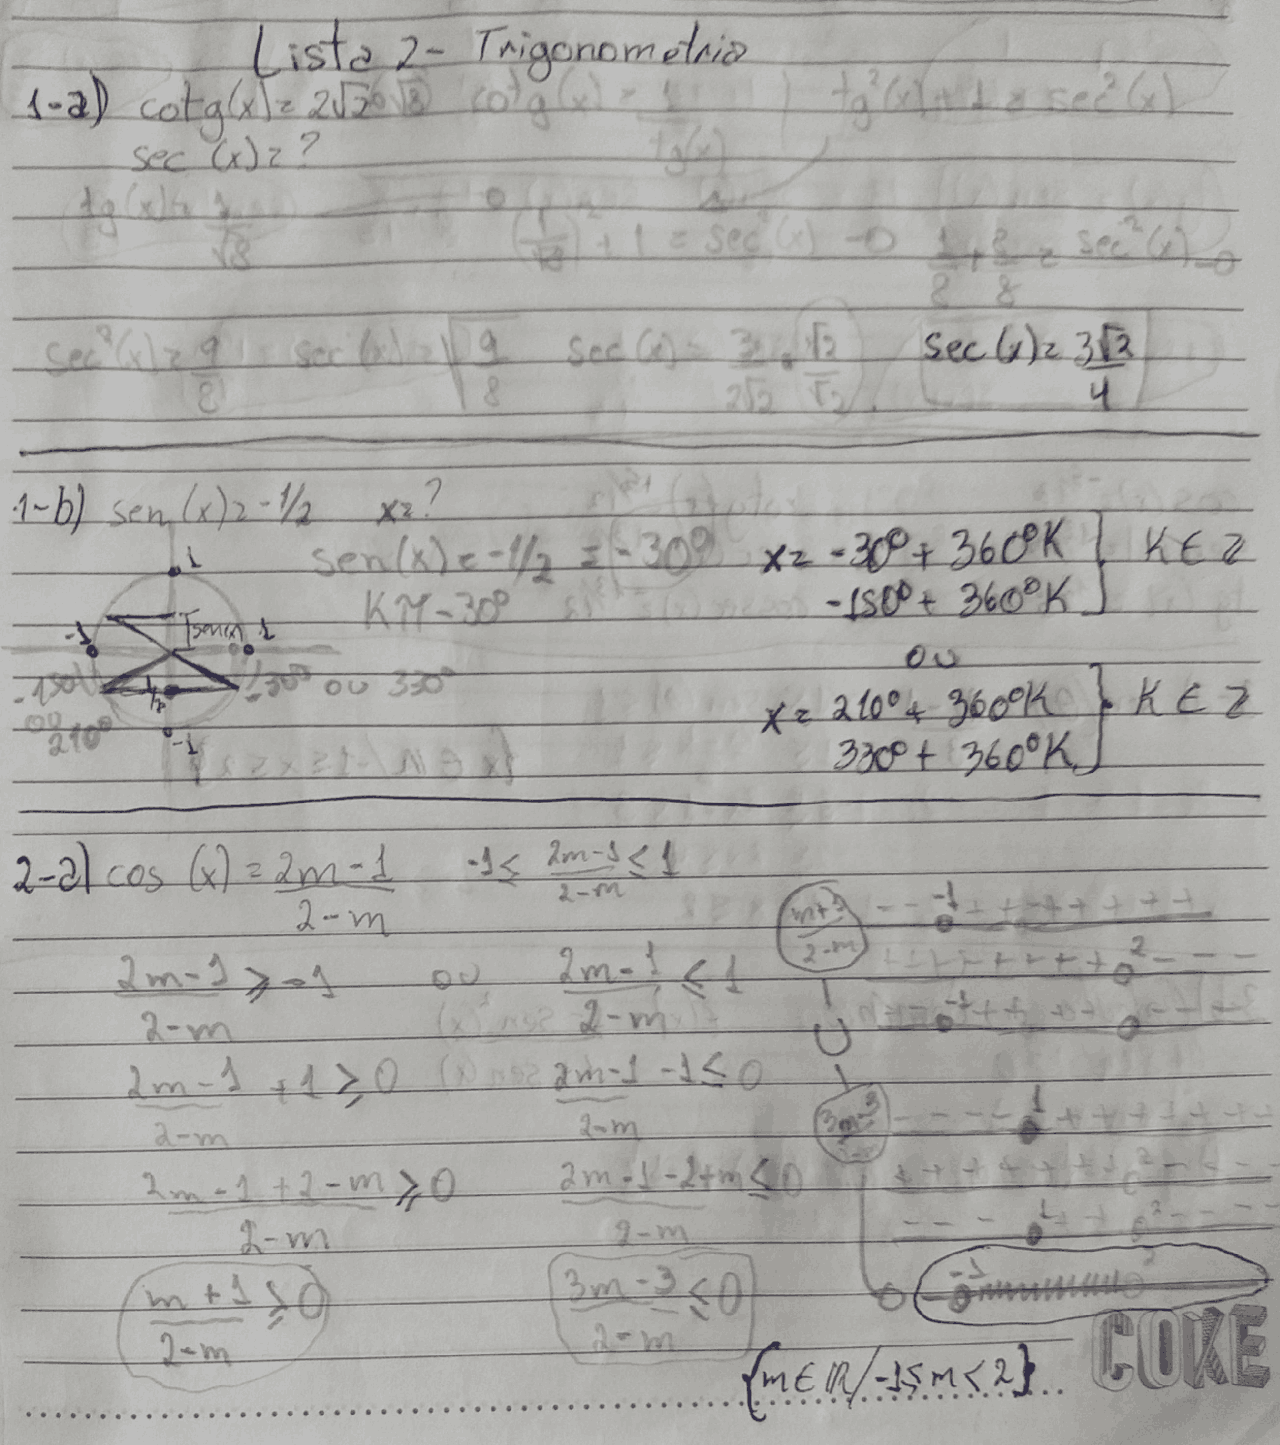 Lista 2 - Trigonometria
1-a) cotg(x) = 2√2 ou √8 cotg(x) = 1/tg(x) | tg²(x) + 1 = sec²(x)
sec (x) = ?
tg(x) = 1/√8 (1/√8)² + 1 = sec²(x) 1/8 + 8/8 = sec²(x)
sec²(x) = 9/8 sec(x) √9/8 sec(x) = 3/2√2 . √2/√2 sec(x) = 3√2/4
1-b) sen(x) = -1/2 x = ?
sen(x) = -1/2 = -30° x = -30° + 360°K } K ∈ Z
Kπ - 30° -150° + 360°K
1
-1 sen(x) 1
ou
-150° 1/2 -30° ou 330°
ou
210° -1
x = 210° + 360°K } K ∈ Z
330° + 360°K
2-a) cos (x) = 2m-1/2-m -1 ≤ 2m-1/2-m ≤ 1
2m-1/2-m ≥ -1 ou 2m-1/2-m ≤ 1
2m-1/2-m + 1 ≥ 0 2m-1/2-m - 1 ≤ 0
2m-1+2-m/2-m ≥ 0 2m-1-2+m/2-m ≤ 0
m+1/2-m ≥ 0 3m-3/2-m ≤ 0
-- -1 +++++++++
+++++++ 2 ---
-1 +++
U
---- 1 +++++++
+++++++ 2 ----
---- 1 ++ 2 ----
-1 2
{m ∈ ℝ / -1 ≤ m < 2}
COKE